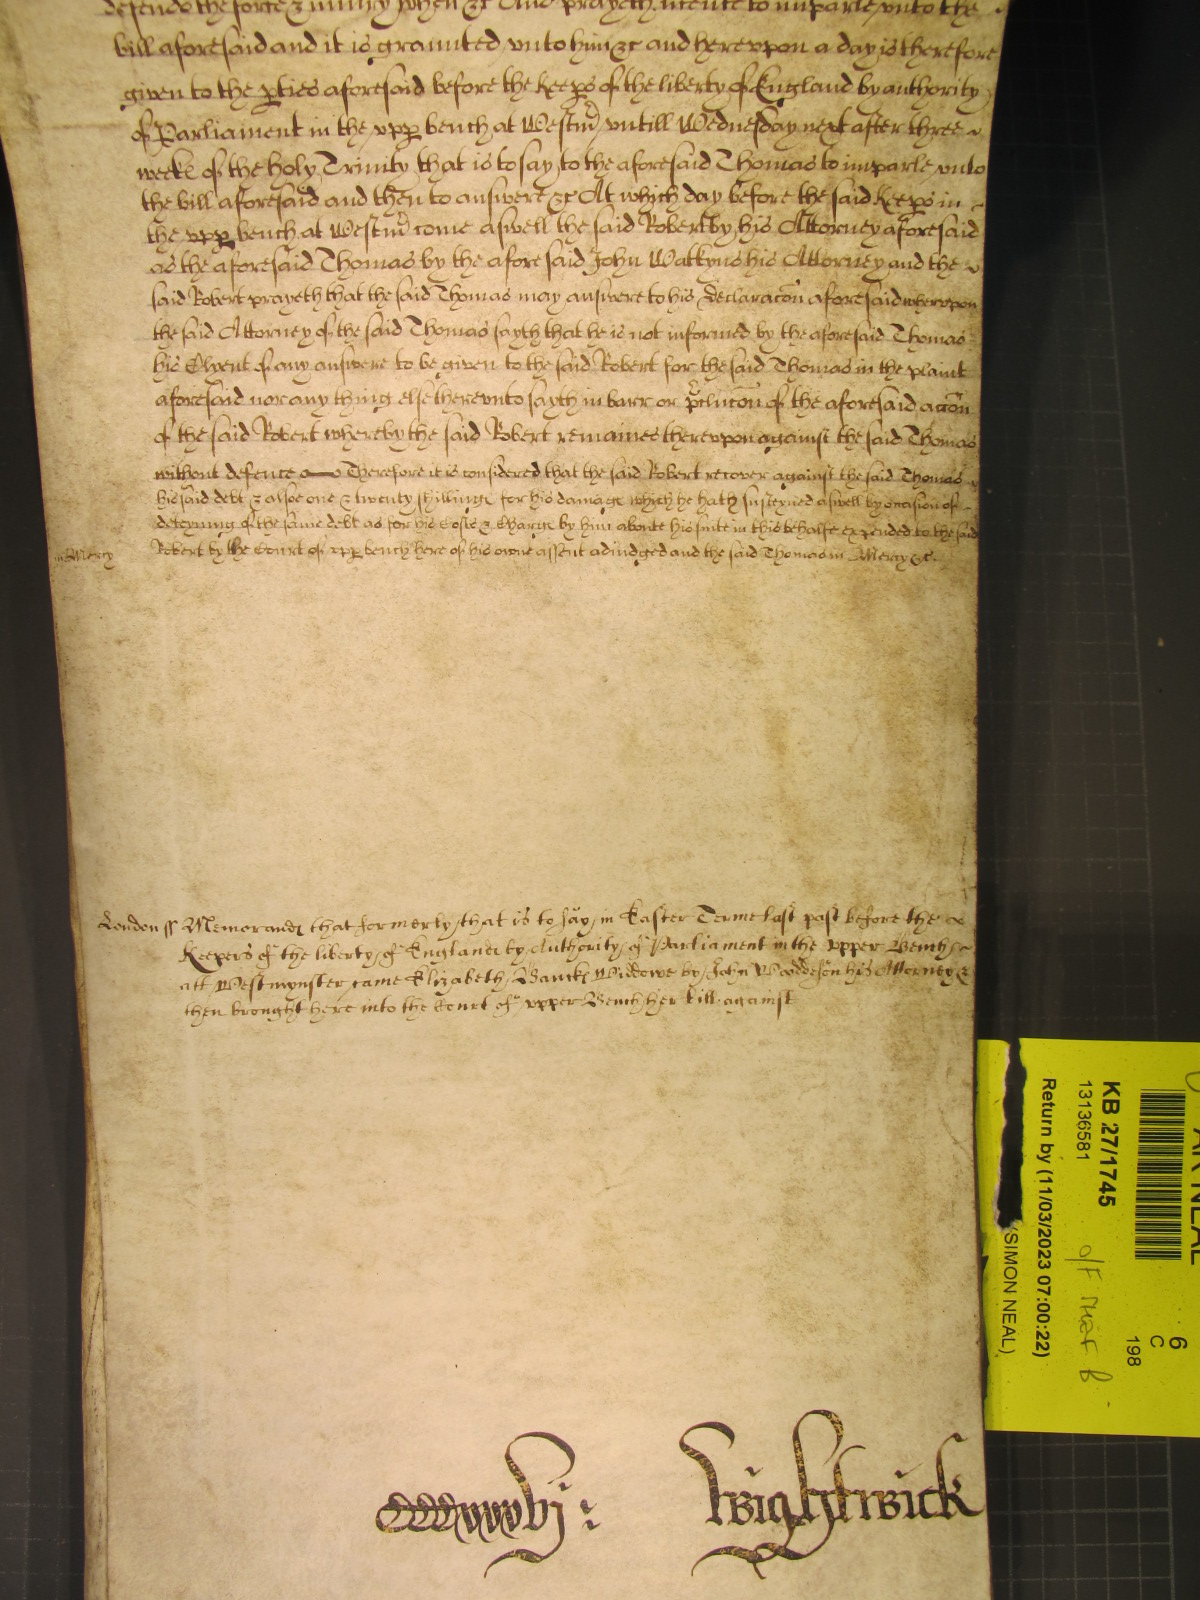 defends the force & iniury when &c And prayeth licence to imparle vnto the
bill aforesaid and it is graunted vnto him &c and herevpon a day is therefore
given to the pties aforesaid before the Keeps of the liberty of England by authority
of Parliament in the vpp bench at Westmr vntill Wednesday next after three
weeke of the holy Trinity that is to say to the aforesaid Thomas to imparle vnto
the bill aforesaid and then to answere &c At which day before the said Keeps in
the vpp bench at Westmr come aswell the said Robert by his Attorney aforesaid
as the aforesaid Thomas by the aforesaid John Watkyns his Attorney and the
said Robert prayeth that the said Thomas may answere to his declaracon aforesaid wherevpon
the said Attorney of the said Thomas sayth that he is not informed by the aforesaid Thomas
his Clyent of any answere to be given to the said Robert for the said Thomas in the plaint
aforesaid nor any thing else therevnto sayth in barr or pclucon of the aforesaid accon
of the said Robert whereby the said Robert remaines therevpon against the said Thomas
without defence Therefore it is considered that the said Robert recover against the said Thomas
his said debt & alsoe one & twenty shillinge for his damage which he hath susteyned aswell by occasion of
deteyning of the same debt as for his Costs & Charge by him aboute his suite in this behalfe expended to the said
in Mercy Robert by the Court of vpp bench here of his owne assent adiudged and the said Thomas in Mercy &c
London ss Memorand that formerly that is to say in Easter Terme last past before the
Keepers of the liberty of England by Authority of Parliament in the vpper Bench
att Westmynster came Elizabeth Bancks Widdowe by John Woddeson his Attorney &
then brought here into the Court of vpper Bench her bill against
ccccxxxvij : Wightwick
6
C
198
KB 27/1745
13136581
Return by (11/03/2023 07:00:22)
(SIMON NEAL)